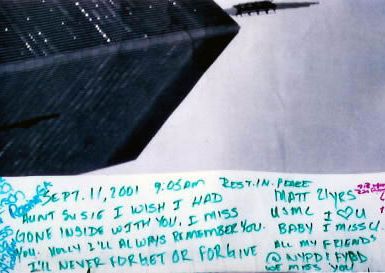 SEPT. 11, 2001 9:03AM REST. IN. PEACE
AUNT SUSIE I WISH I HAD
GONE INSIDE WITH YOU. I MISS
YOU. HOLLY I'LL ALWAYS REMEMBER YOU.
I'LL NEVER FORGET OR FORGIVE
MATT 21yrs
USMC I ♥ U
BABY I MISS U
ALL MY FRIENDS
@ NYPD! FYBD
WE MISS YOU